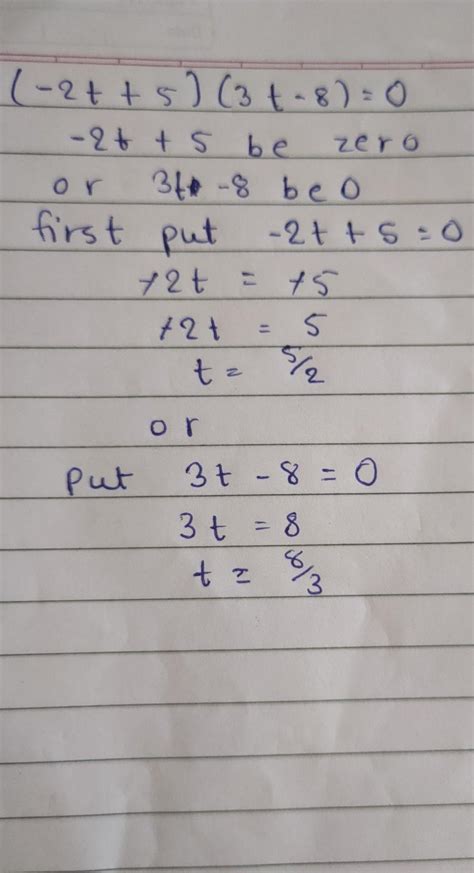 (-2t + 5)(3t - 8) = 0
-2t + 5 be zero
or 3t -8 be 0
first put -2t + 5 = 0
+2t = +5
+2t = 5
t = 5/2
or
put 3t - 8 = 0
3t = 8
t = 8/3